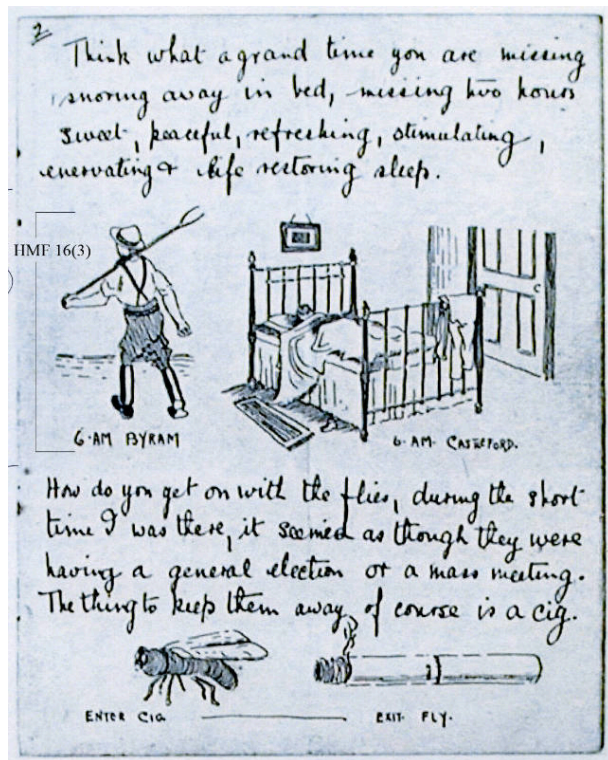 2
Think what a grand time you are missing
snoring away in bed, missing two hours
sweet, peaceful, refreshing, stimulating,
enervating & life restoring sleep.
HMF 16(3)
6·AM BYRAM
6·AM· CASTLEFORD.
How do you get on with the flies, during the short
time I was there, it seemed as though they were
having a general election or a mass meeting.
The thing to keep them away, of course is a cig.
ENTER CIG. EXIT· FLY.